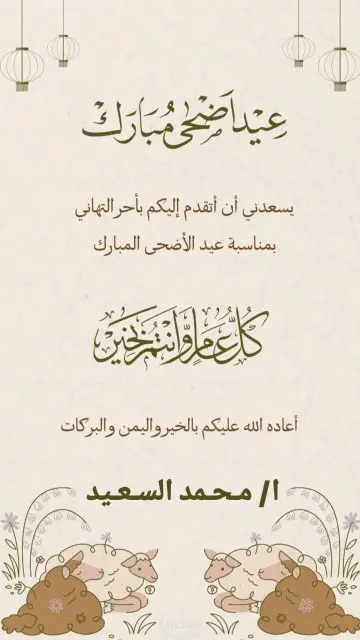 عيد أضحى مبارك
يسعدني أن أتقدم إليكم بأحر التهاني
بمناسبة عيد الأضحى المبارك
كل عام وأنتم بخير
أعاده الله عليكم بالخير واليمن والبركات
ا/ محمد السعيد